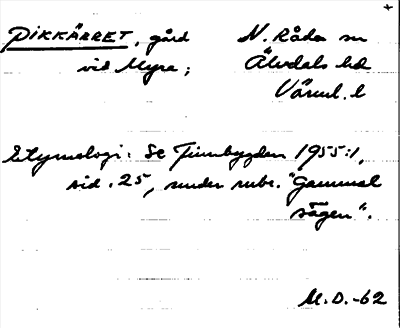 +
PIKKÄRRET, gård N. Råda sn
vid Myra; Älvdals hd
Värml. l
Etymologi: Se Finnbygden 1955:1,
sid. 25, under rubr. "Gammal
sägen".
M.D.-62